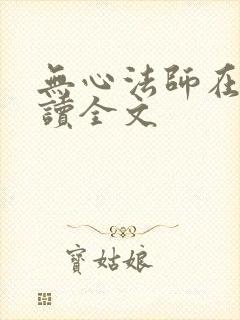 無心法師在
讀全文
寶姑娘